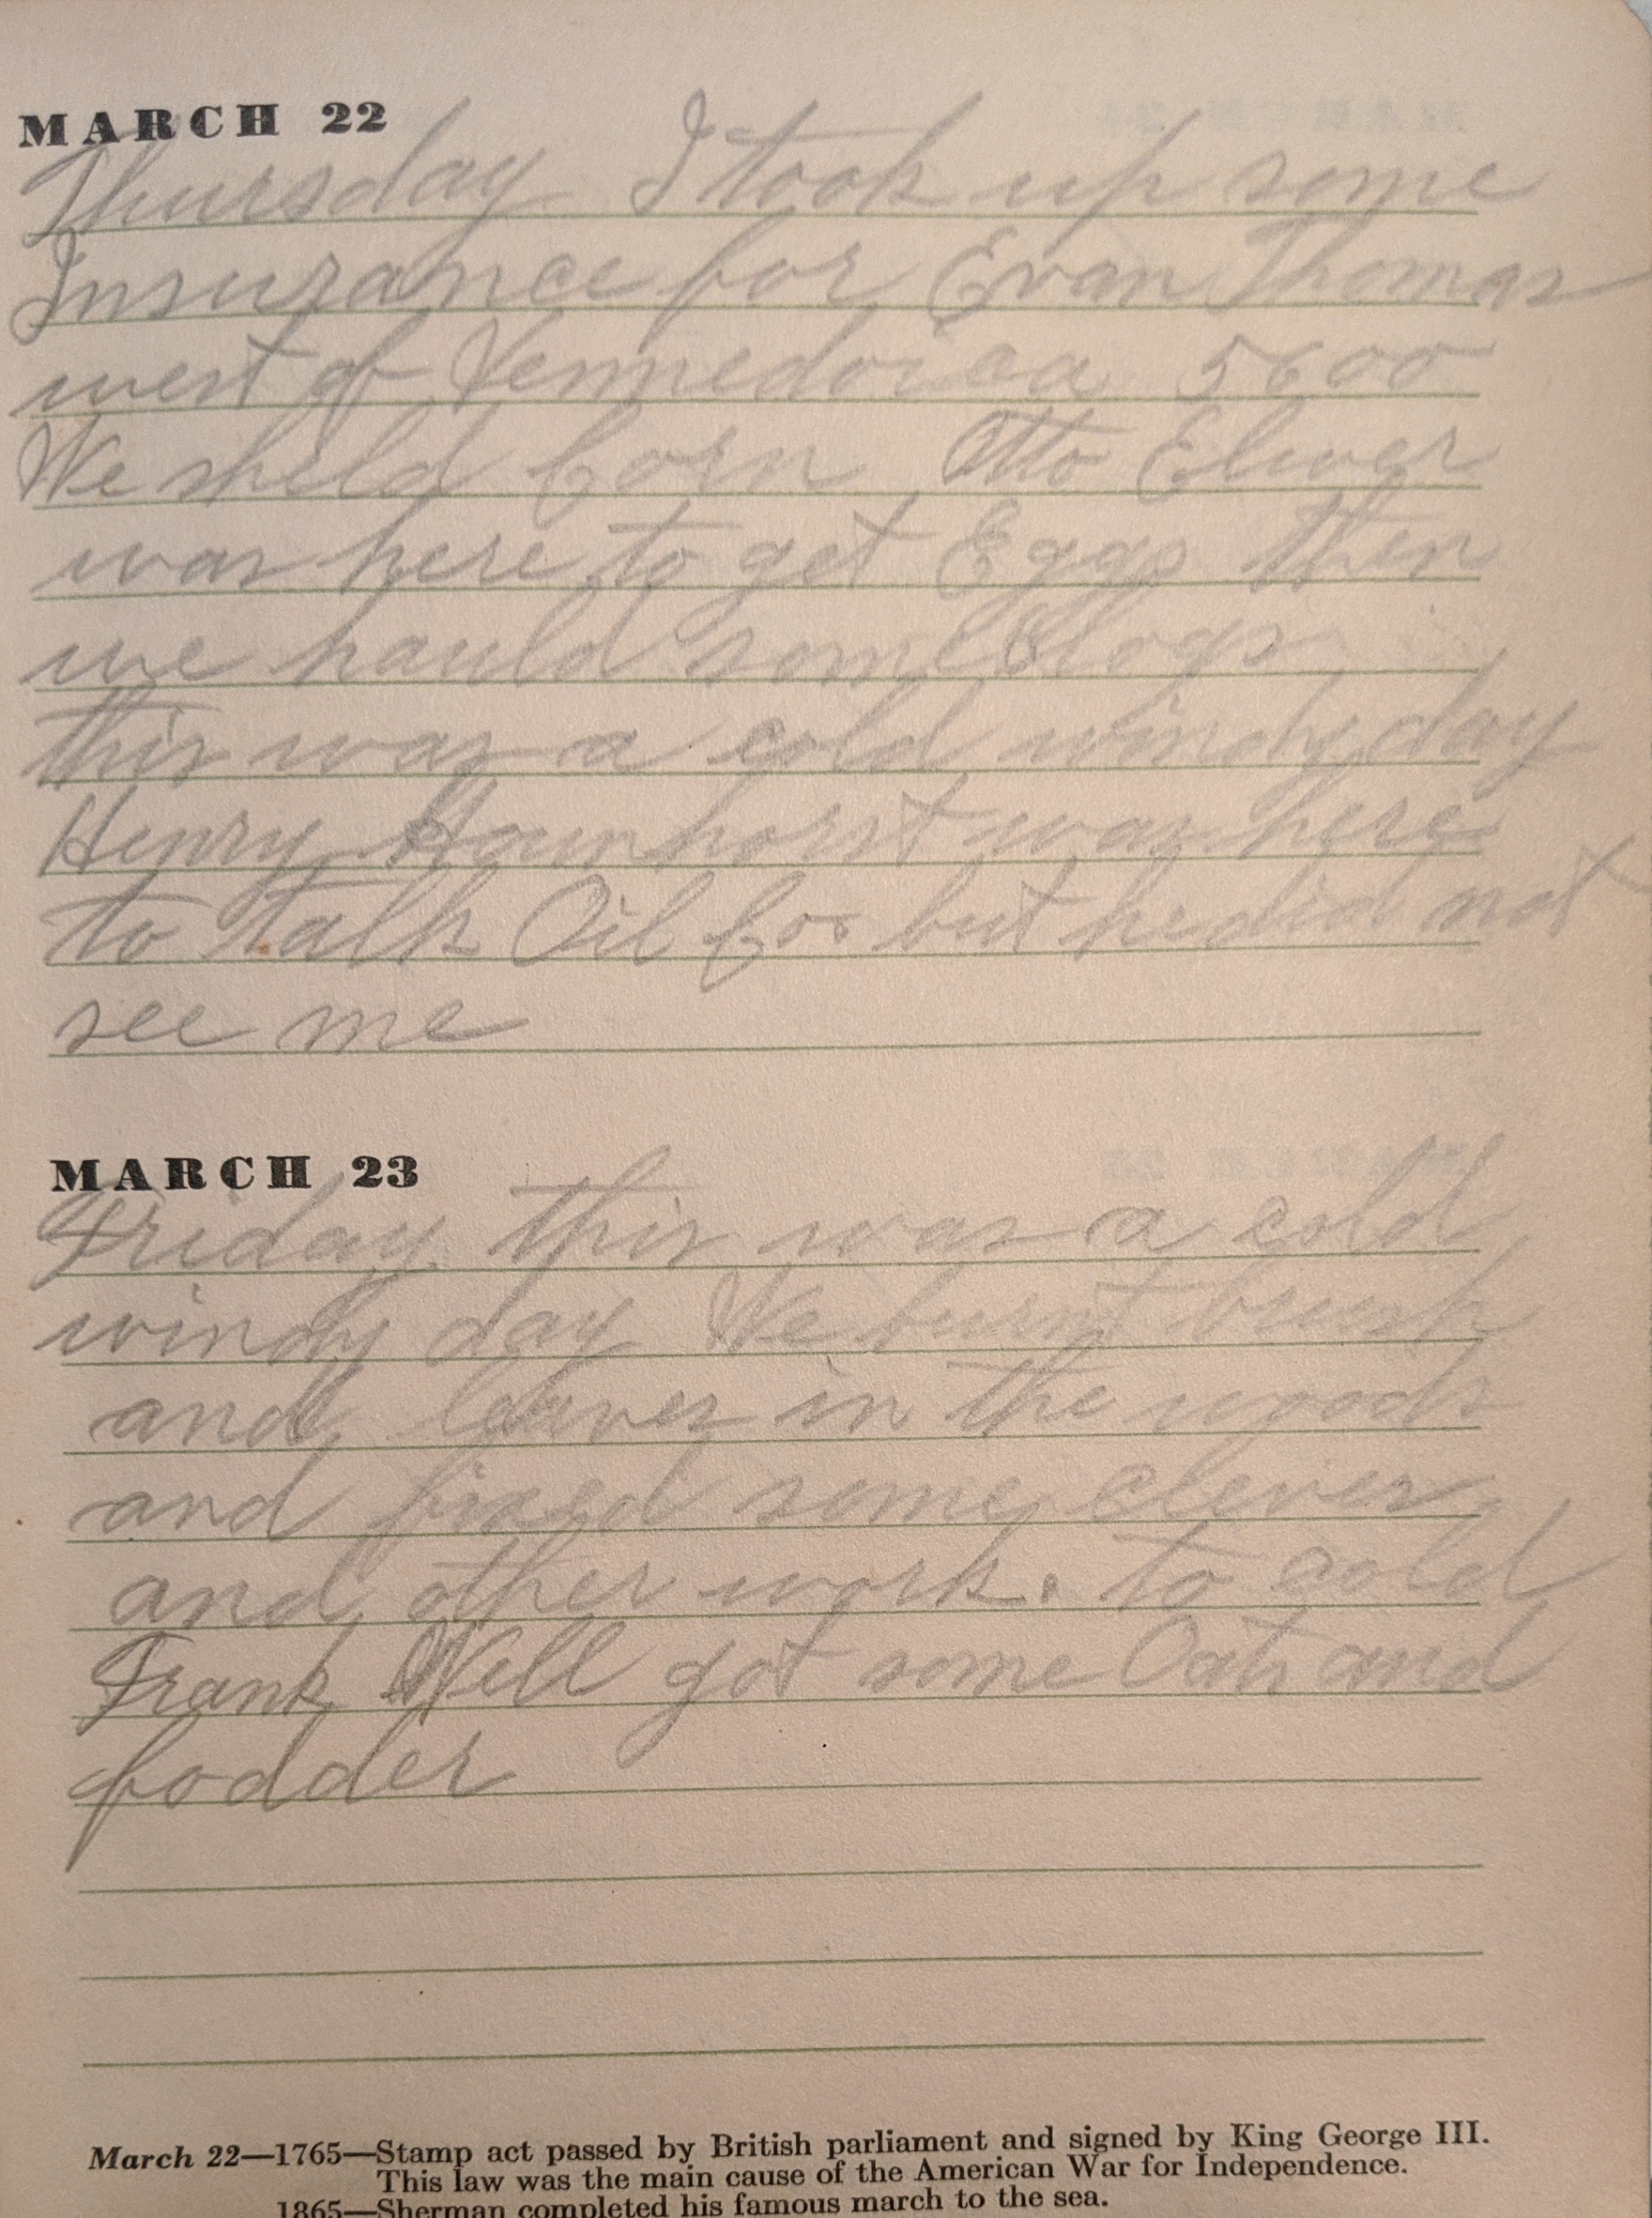 MARCH 22
Thursday I took up some
Insurance for Evan Thomas
west of Vennedocia 5600
We sheld Corn Otto Elwer
was here to get Eggs then
we hauld some Logs
this was a cold windy day
Henry Hounhorst was here
to Talk Oil Co. but he did not
see me
MARCH 23
Friday this was a cold
windy day We burnt brush
and leaves in the woods
and fixed some clever
and other work. to cold
Frank Well got some Oats and
fodder
March 22—1765—Stamp act passed by British parliament and signed by King George III.
This law was the main cause of the American War for Independence.
1865—Sherman completed his famous march to the sea.